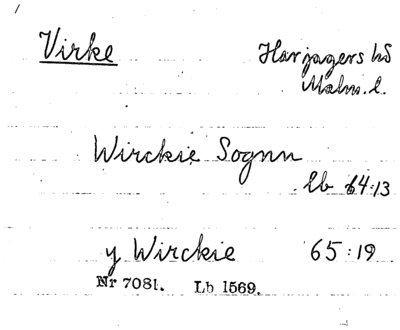 Virke
Harjagers hd
Malm. l.
Wirckie Sognn
lb 64:13
y Wirckie 65:19
Nr 7081. Lb 1569.